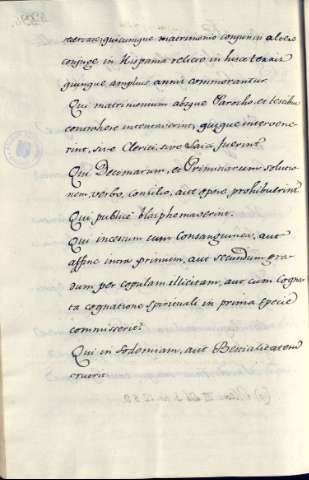 quicumque matrimonio conjuncti altero
conjuge in Hispania relicto in hisce terris
quinque amplius annis commorantur.
Qui matrimonium absque Parocho, et testibus
contrahere intentaverint, quique intervene-
rint, sive Clerici, sive Laici fuerint.
Qui Decimarum, et Primitiarum solutio-
nem, verbo, consilio, aut opere, prohibuerint
Qui publicè blasphemaverint.
Qui incestum cum Consanguinea, aut
affine intra primum, aut secundum gra-
dum per copulam illicitam, aut cum Cogna-
ta cognatione Spirituali in prima specie
commisserit.
Qui in Sodomiam, aut Bestialitatem